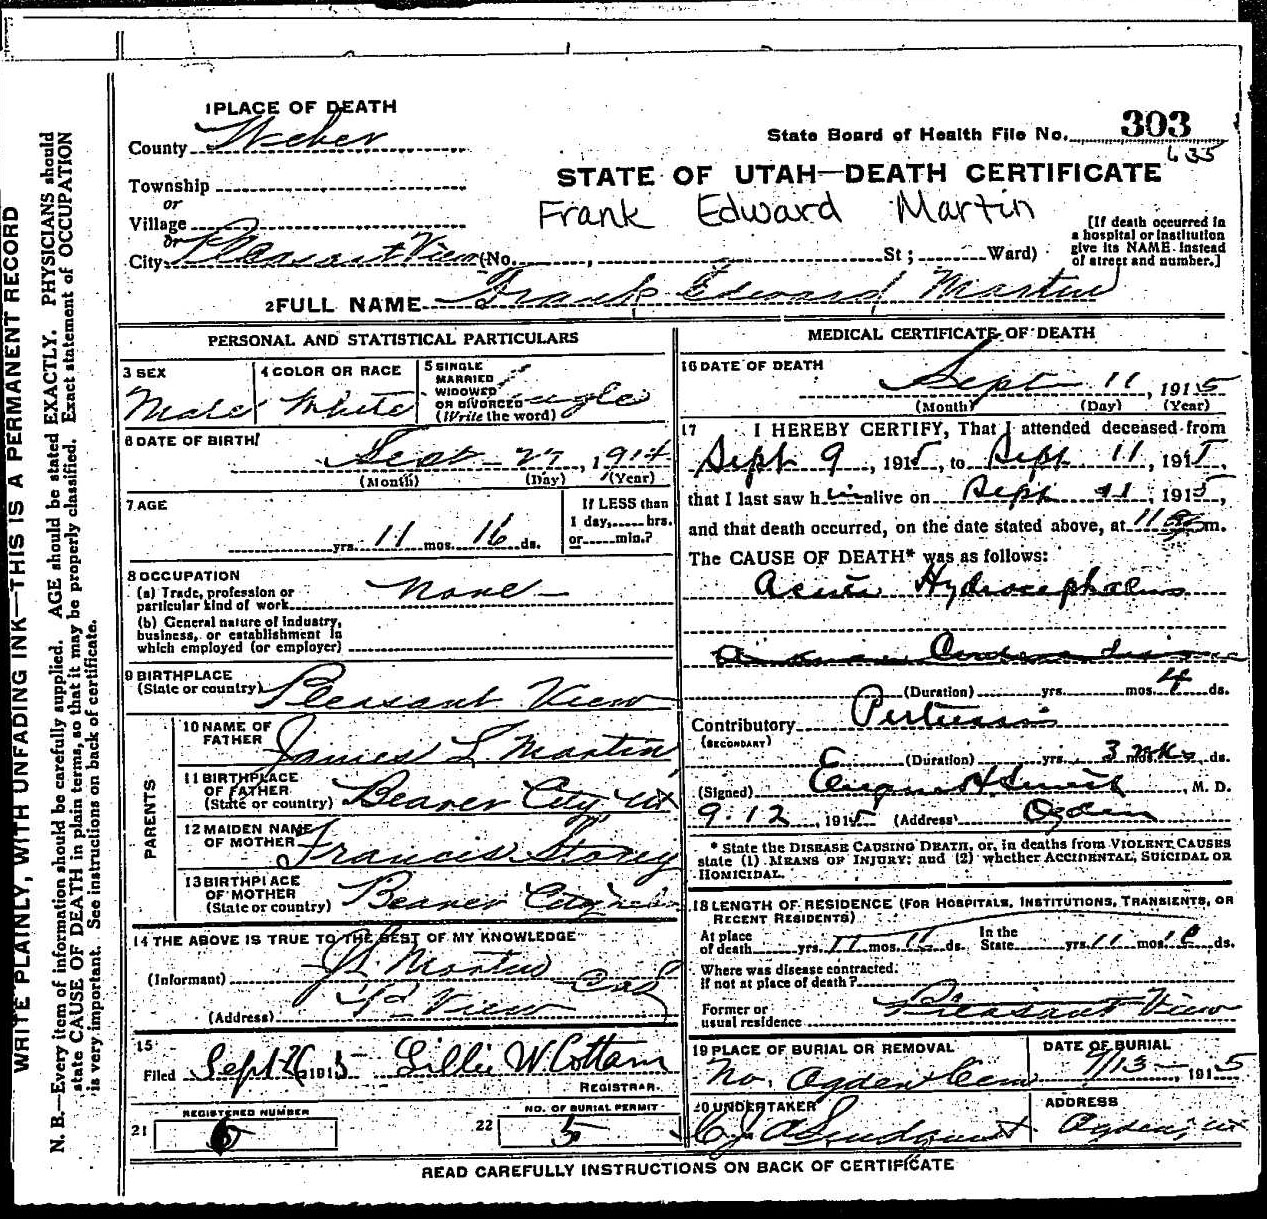 WRITE PLAINLY, WITH UNFADING INK—THIS IS A PERMANENT RECORD
N. B.—Every item of information should be carefully supplied. AGE should be stated EXACTLY. PHYSICIANS should
state CAUSE OF DEATH in plain terms, so that it may be properly classified. Exact statement of OCCUPATION
is very important. See instructions on back of certificate.
1 PLACE OF DEATH
County Weber
Township
or
Village
or
City Pleasant View (No. , St; Ward)
State Board of Health File No. 303
635
STATE OF UTAH—DEATH CERTIFICATE
Frank Edward Martin
[If death occurred in
a hospital or institution
give its NAME instead
of street and number.]
2 FULL NAME Frank Edward Martin
PERSONAL AND STATISTICAL PARTICULARS
3 SEX
Male
4 COLOR OR RACE
White
5 SINGLE
MARRIED
WIDOWED
OR DIVORCED
(Write the word)
Single
6 DATE OF BIRTH
Sept 27, 1914
(Month) (Day) (Year)
7 AGE
yrs. 11 mos. 16 ds.
If LESS than
1 day, hrs.
or min.?
8 OCCUPATION
(a) Trade, profession or
particular kind of work None
(b) General nature of industry,
business, or establishment in
which employed (or employer)
9 BIRTHPLACE
(State or country) Pleasant View
PARENTS
10 NAME OF
FATHER James L Martin
11 BIRTHPLACE
OF FATHER
(State or country) Beaver City Ut
12 MAIDEN NAME
OF MOTHER Francis Storey
13 BIRTHPLACE
OF MOTHER
(State or country) Beaver City
14 THE ABOVE IS TRUE TO THE BEST OF MY KNOWLEDGE
(Informant) J L Martin
(Address) P View
15
Filed Sept 26 1915 Lillie W Cottam
REGISTRAR.
REGISTERED NUMBER
21
NO. OF BURIAL PERMIT
22 5
MEDICAL CERTIFICATE OF DEATH
16 DATE OF DEATH
Sept 11, 1915
(Month) (Day) (Year)
17 I HEREBY CERTIFY, That I attended deceased from
Sept 9, 1915, to Sept 11, 1915,
that I last saw him alive on Sept 11, 1915,
and that death occurred, on the date stated above, at 11 m.
The CAUSE OF DEATH* was as follows:
Acute Hydrocephalus
(Duration) yrs. mos. 4 ds.
Contributory Pertussis
(SECONDARY)
(Duration) yrs. 3 wks mos. ds.
(Signed) Eugene H Smith, M. D.
9-12, 1915 (Address) Ogden
* State the DISEASE CAUSING DEATH, or, in deaths from VIOLENT CAUSES
state (1) MEANS OF INJURY; and (2) whether ACCIDENTAL, SUICIDAL OR
HOMICIDAL.
18 LENGTH OF RESIDENCE (FOR HOSPITALS, INSTITUTIONS, TRANSIENTS, OR
RECENT RESIDENTS)
At place
of death yrs. 11 mos. 16 ds. In the
State yrs. 11 mos. 16 ds.
Where was disease contracted.
if not at place of death?
Former or
usual residence Pleasant View
19 PLACE OF BURIAL OR REMOVAL
No. Ogden Cem
DATE OF BURIAL
9/13, 1915
20 UNDERTAKER
ADDRESS
Ogden, Ut
READ CAREFULLY INSTRUCTIONS ON BACK OF CERTIFICATE